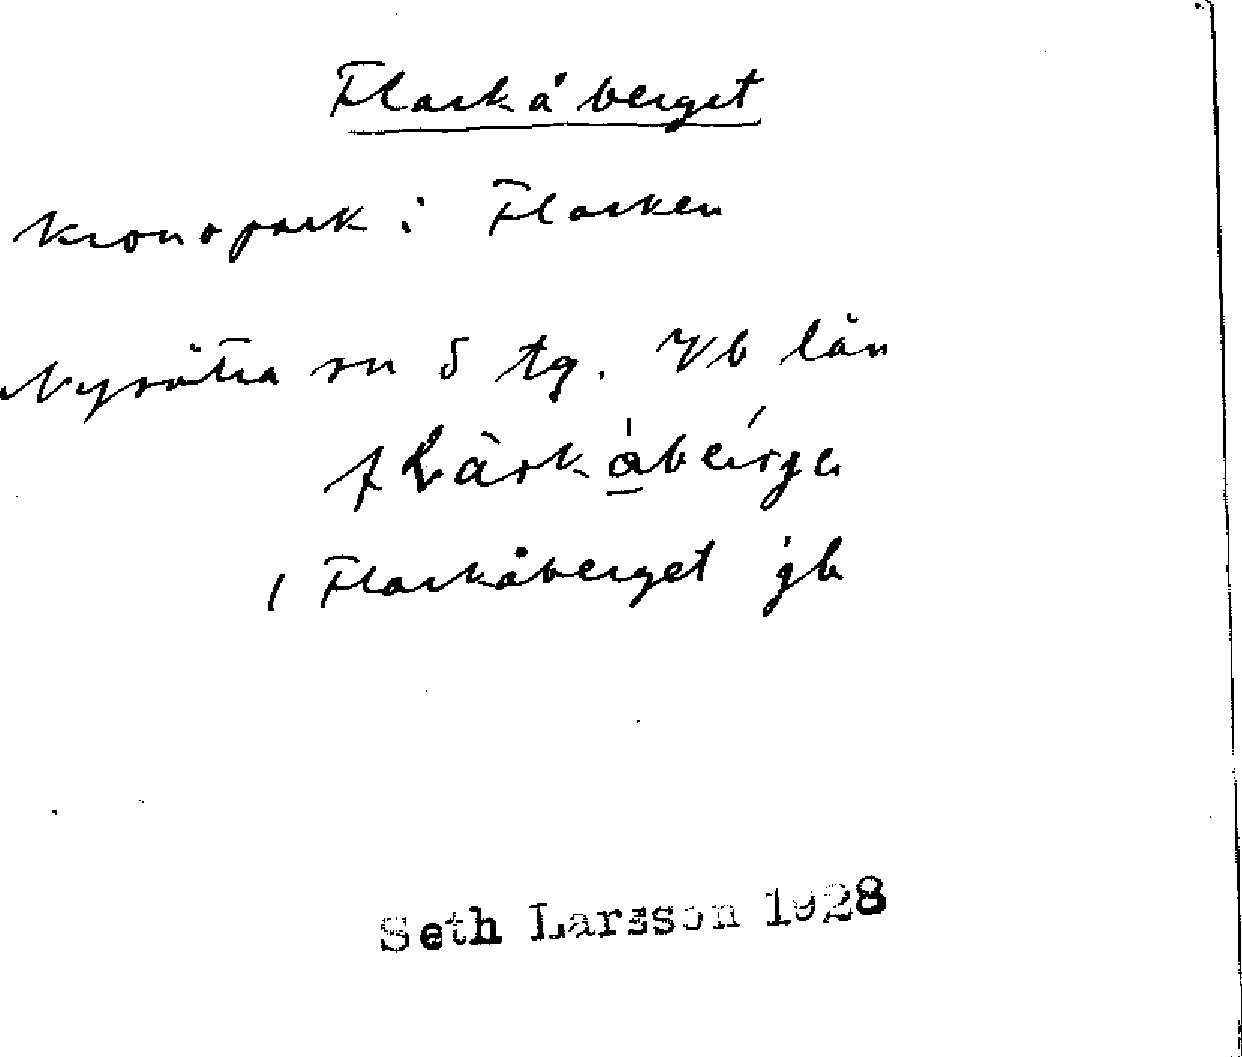 Flarkåberget
Kronopark i Flarken
Nysätra sn S tg. Vb län
1 Flarkåberget jb
Seth Larsson 1928